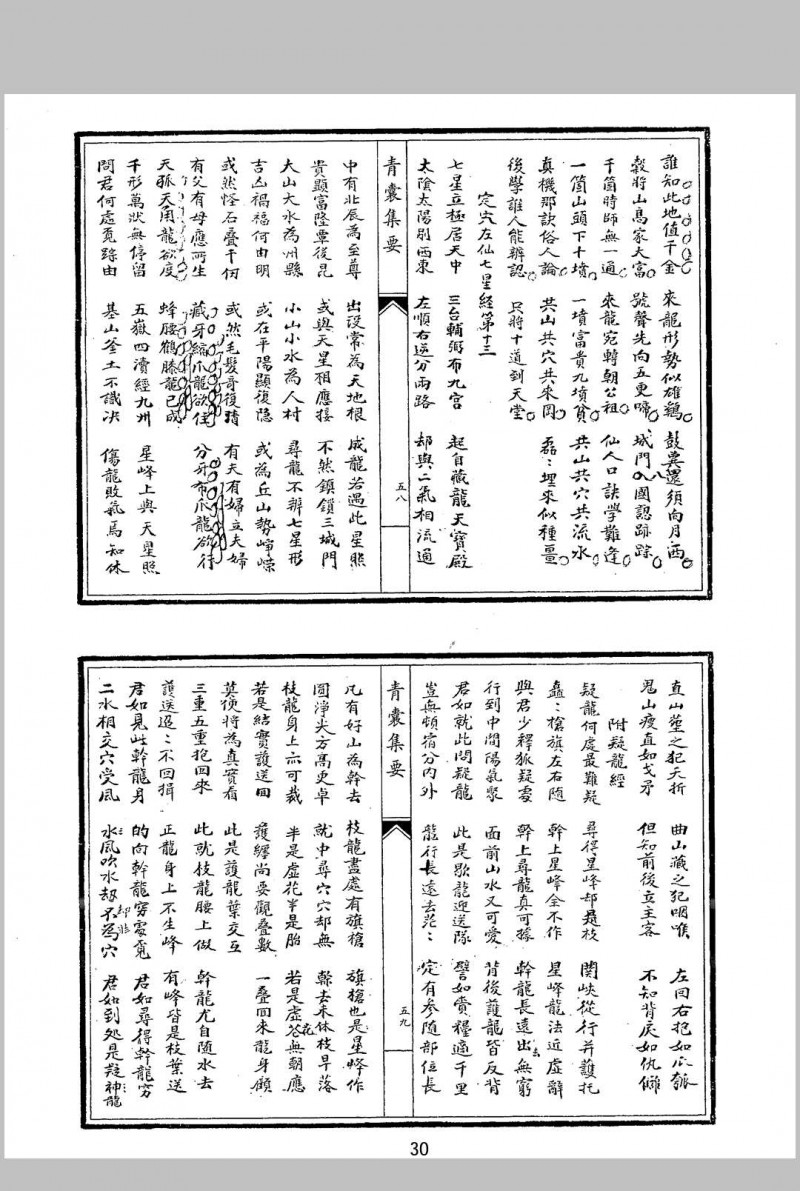 誰知此地值千金 來龍形勢似雄鷄 鼓翼還須向月西
穀將山高家大富 號聲先向五更啼 城門八國認跡踪
千箇時師無一通 來龍宛轉朝公祖 仙人口訣學難逢
一箇山頭下十墳 一墳富貴九墳貧 共山共穴共流水
真機那訣俗人論 共山共穴共來岡 磊:埋來似種薑
後學誰人能辨認 只將十道到天堂
定穴左仙七星經第十三
七星立極居天中 三台輔弼布九宮 起自藏龍天寶殿
太陰太陽別西東 左順右逆分兩路 却與二氣相流通
青囊集要
五八
中有北辰為至尊 出沒常為天地根 成龍若遇此星照
貴顯富隆覃後昆 或與天星相應接 不然鎖鎖三城門
大山大水為州縣 小山小水為人村 尋龍不辨七星形
吉凶禍福何由明 或在平陽顯復隱 或為丘山勢崢嶸
或然怪石疊千仞 或然毛髮奇後猜 有夫有婦立夫婦
有父有母應所生 藏牙縮爪龍欲住 分牙布爪龍欲行
天孤天角龍欲度 蜂腰鶴膝龍已成
千形萬狀無停留 五嶽四瀆經九州 星峰上與天星照
問君何處覓踪由 基山釜土不識決 傷龍敗氣焉知休
直山塋之犯夭折 曲山藏之犯咽喉 左回右抱如瓜瓞
鬼山瘦直如戈矛 但知前後立主客 不知背戾如仇讎
附疑龍經
疑龍何處最難疑 尋得星峰却是枝 關峽從行并護托
矗:槍旗左右隨 幹上星峰全不作 星峰龍法近虛辭
與君少釋狐疑處 幹上尋龍真可據 幹龍長遠出無窮
行到中間陽氣聚 面前山水又可愛 背後護龍皆反背
君如就此問疑龍 此是歇龍迎送隊 譬如賫糧適千里
豈無頓宿分內外 龍行長遠去茫: 定有參隨部位長
青囊集要
五九
凡有好山為幹去 枝龍盡處有旗槍 旗槍也是星峰作
圓淨尖方高更卓 就中尋穴穴却無 幹去未休枝早落
枝龍身上亦可裁 半是虛花半是胎 若是虛花無朝應
若是結實護送回 護纏尚要觀疊數 一疊回來龍身顧
莫便將為真實看 此是護龍葉交互
三重五重抱回來 此就枝龍腰上做 幹龍尤自隨水去
護送迢:不回揖 正龍身上不生峰 有峰皆是枝葉送
君如見此幹龍身 的向幹龍窮處覓 君如尋得幹龍窮
二水相交穴受風 水風吹水却不為穴 君如到処是疑神龍
30